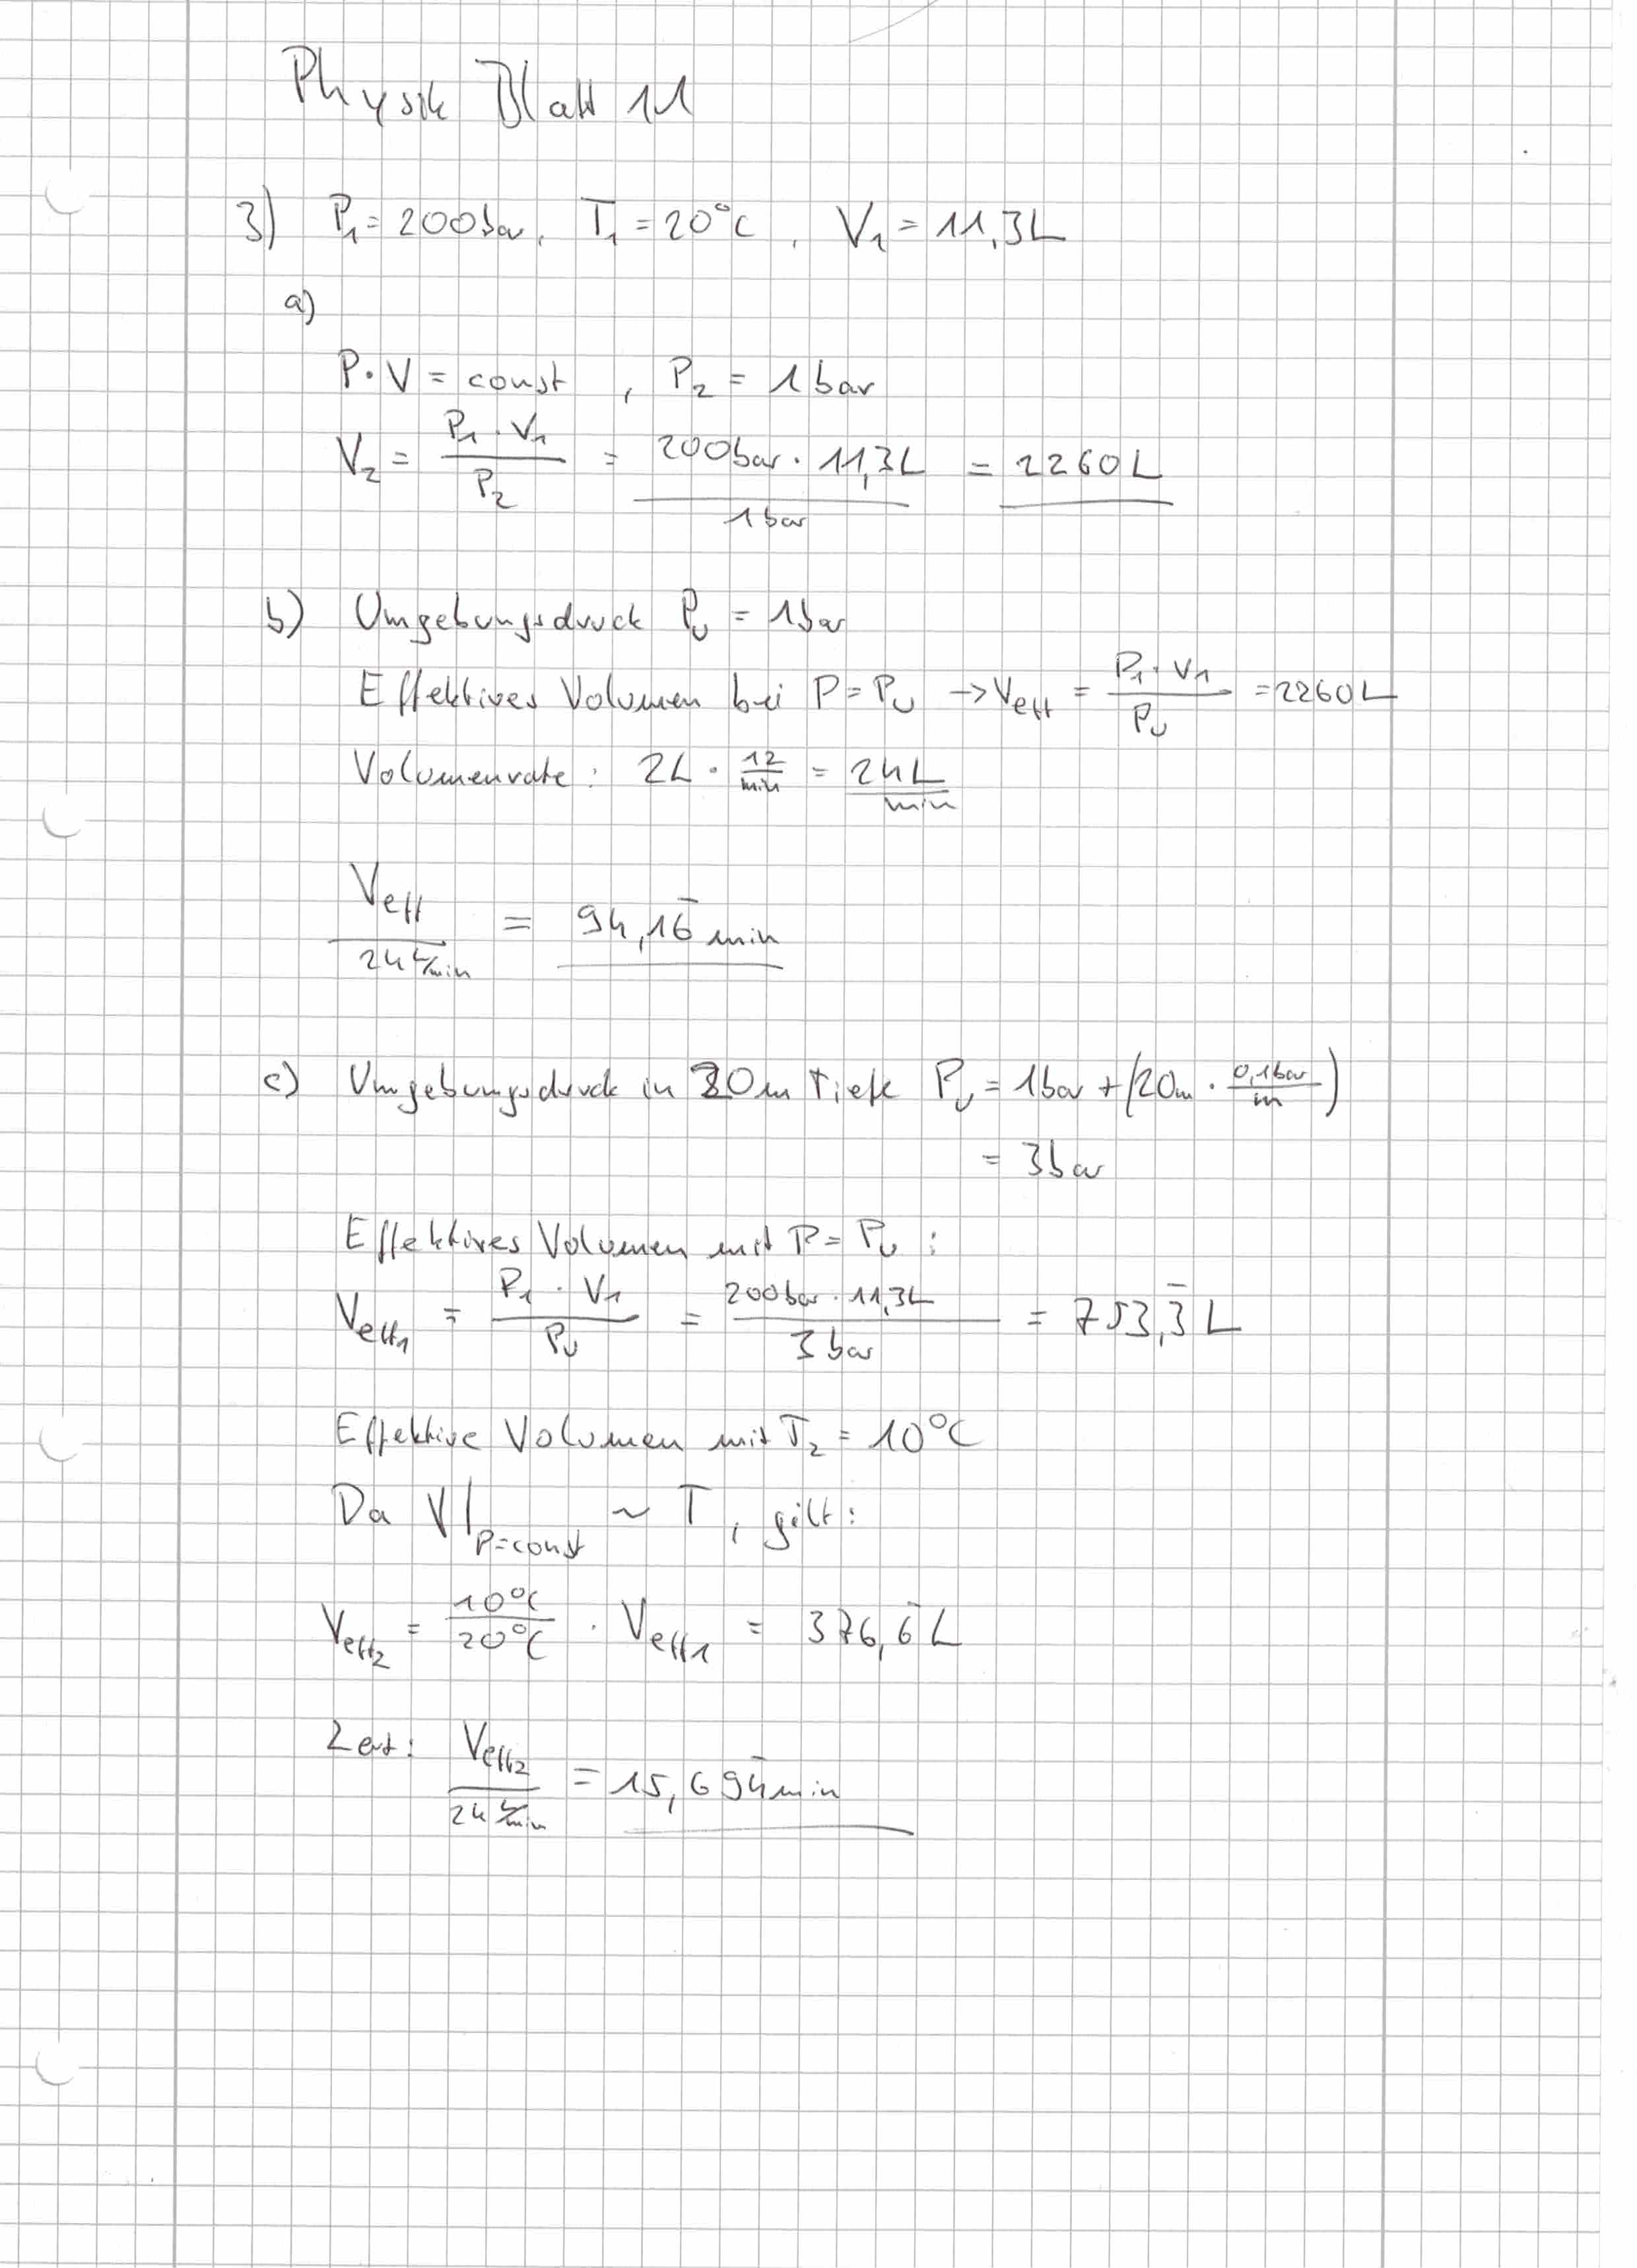 Physik Blatt 11
3) P₁ = 200 bar, T₁ = 20°C, V₁ = 11,3L
a)
P·V = const, P₂ = 1 bar
V₂ = (P₁ · V₁)/P₂ = (200 bar · 11,3L)/(1 bar) = 2260L
b) Umgebungsdruck Pᵤ = 1 bar
Effektives Volumen bei P = Pᵤ → Veff = (P₁ · V₁)/Pᵤ = 2260L
Volumenrate: 2L · 12/min = 24L/min
Veff/(24 L/min) = 94,16̄ min
c) Umgebungsdruck in 20m Tiefe Pᵤ = 1bar + (20m · 0,1bar/m)
= 3bar
Effektives Volumen mit P = Pᵤ :
Veff₁ = (P₁ · V₁)/Pᵤ = (200bar · 11,3L)/(3 bar) = 753,3̄ L
Effektive Volumen mit T₂ = 10°C
Da V|P=const ~ T, gilt:
Veff₂ = 10°C/20°C · Veff₁ = 376,6̄ L
Zeit: Veff₂/(24 L/min) = 15,694̄ min